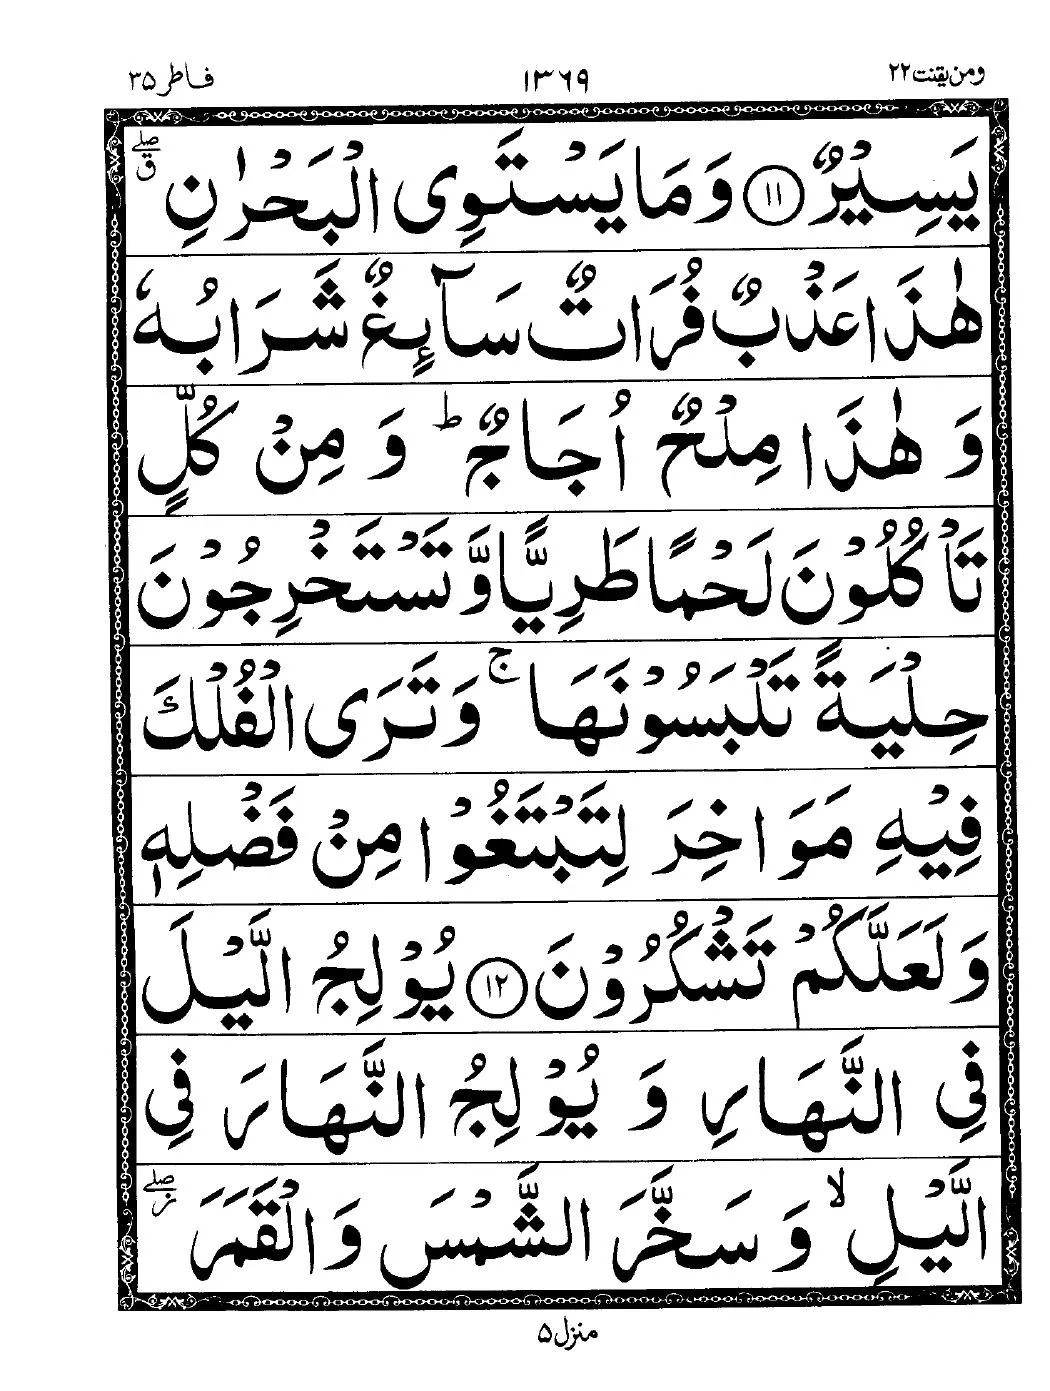 ومن یقنت ۲۲ ۱۳۶۹ فاطر ۳۵
يَسِيْرٌ ⑪ وَمَا يَسْتَوِى الْبَحْرٰنِ ۖق
هٰذَا عَذْبٌ فُرَاتٌ سَآىِٕغٌ شَرَابُهٗ
وَ هٰذَا مِلْحٌ اُجَاجٌ ؕ وَ مِنْ كُلٍّ
تَاْكُلُوْنَ لَحْمًا طَرِيًّا وَّ تَسْتَخْرِجُوْنَ
حِلْيَةً تَلْبَسُوْنَهَا ۚ وَ تَرَى الْفُلْكَ
فِيْهِ مَوَاخِرَ لِتَبْتَغُوْا مِنْ فَضْلِهٖ
وَ لَعَلَّكُمْ تَشْكُرُوْنَ ⑫ يُوْلِجُ الَّيْلَ
فِى النَّهَارِ وَ يُوْلِجُ النَّهَارَ فِى
الَّيْلِ ۙ وَ سَخَّرَ الشَّمْسَ وَالْقَمَرَ ۖز
منزل ۵